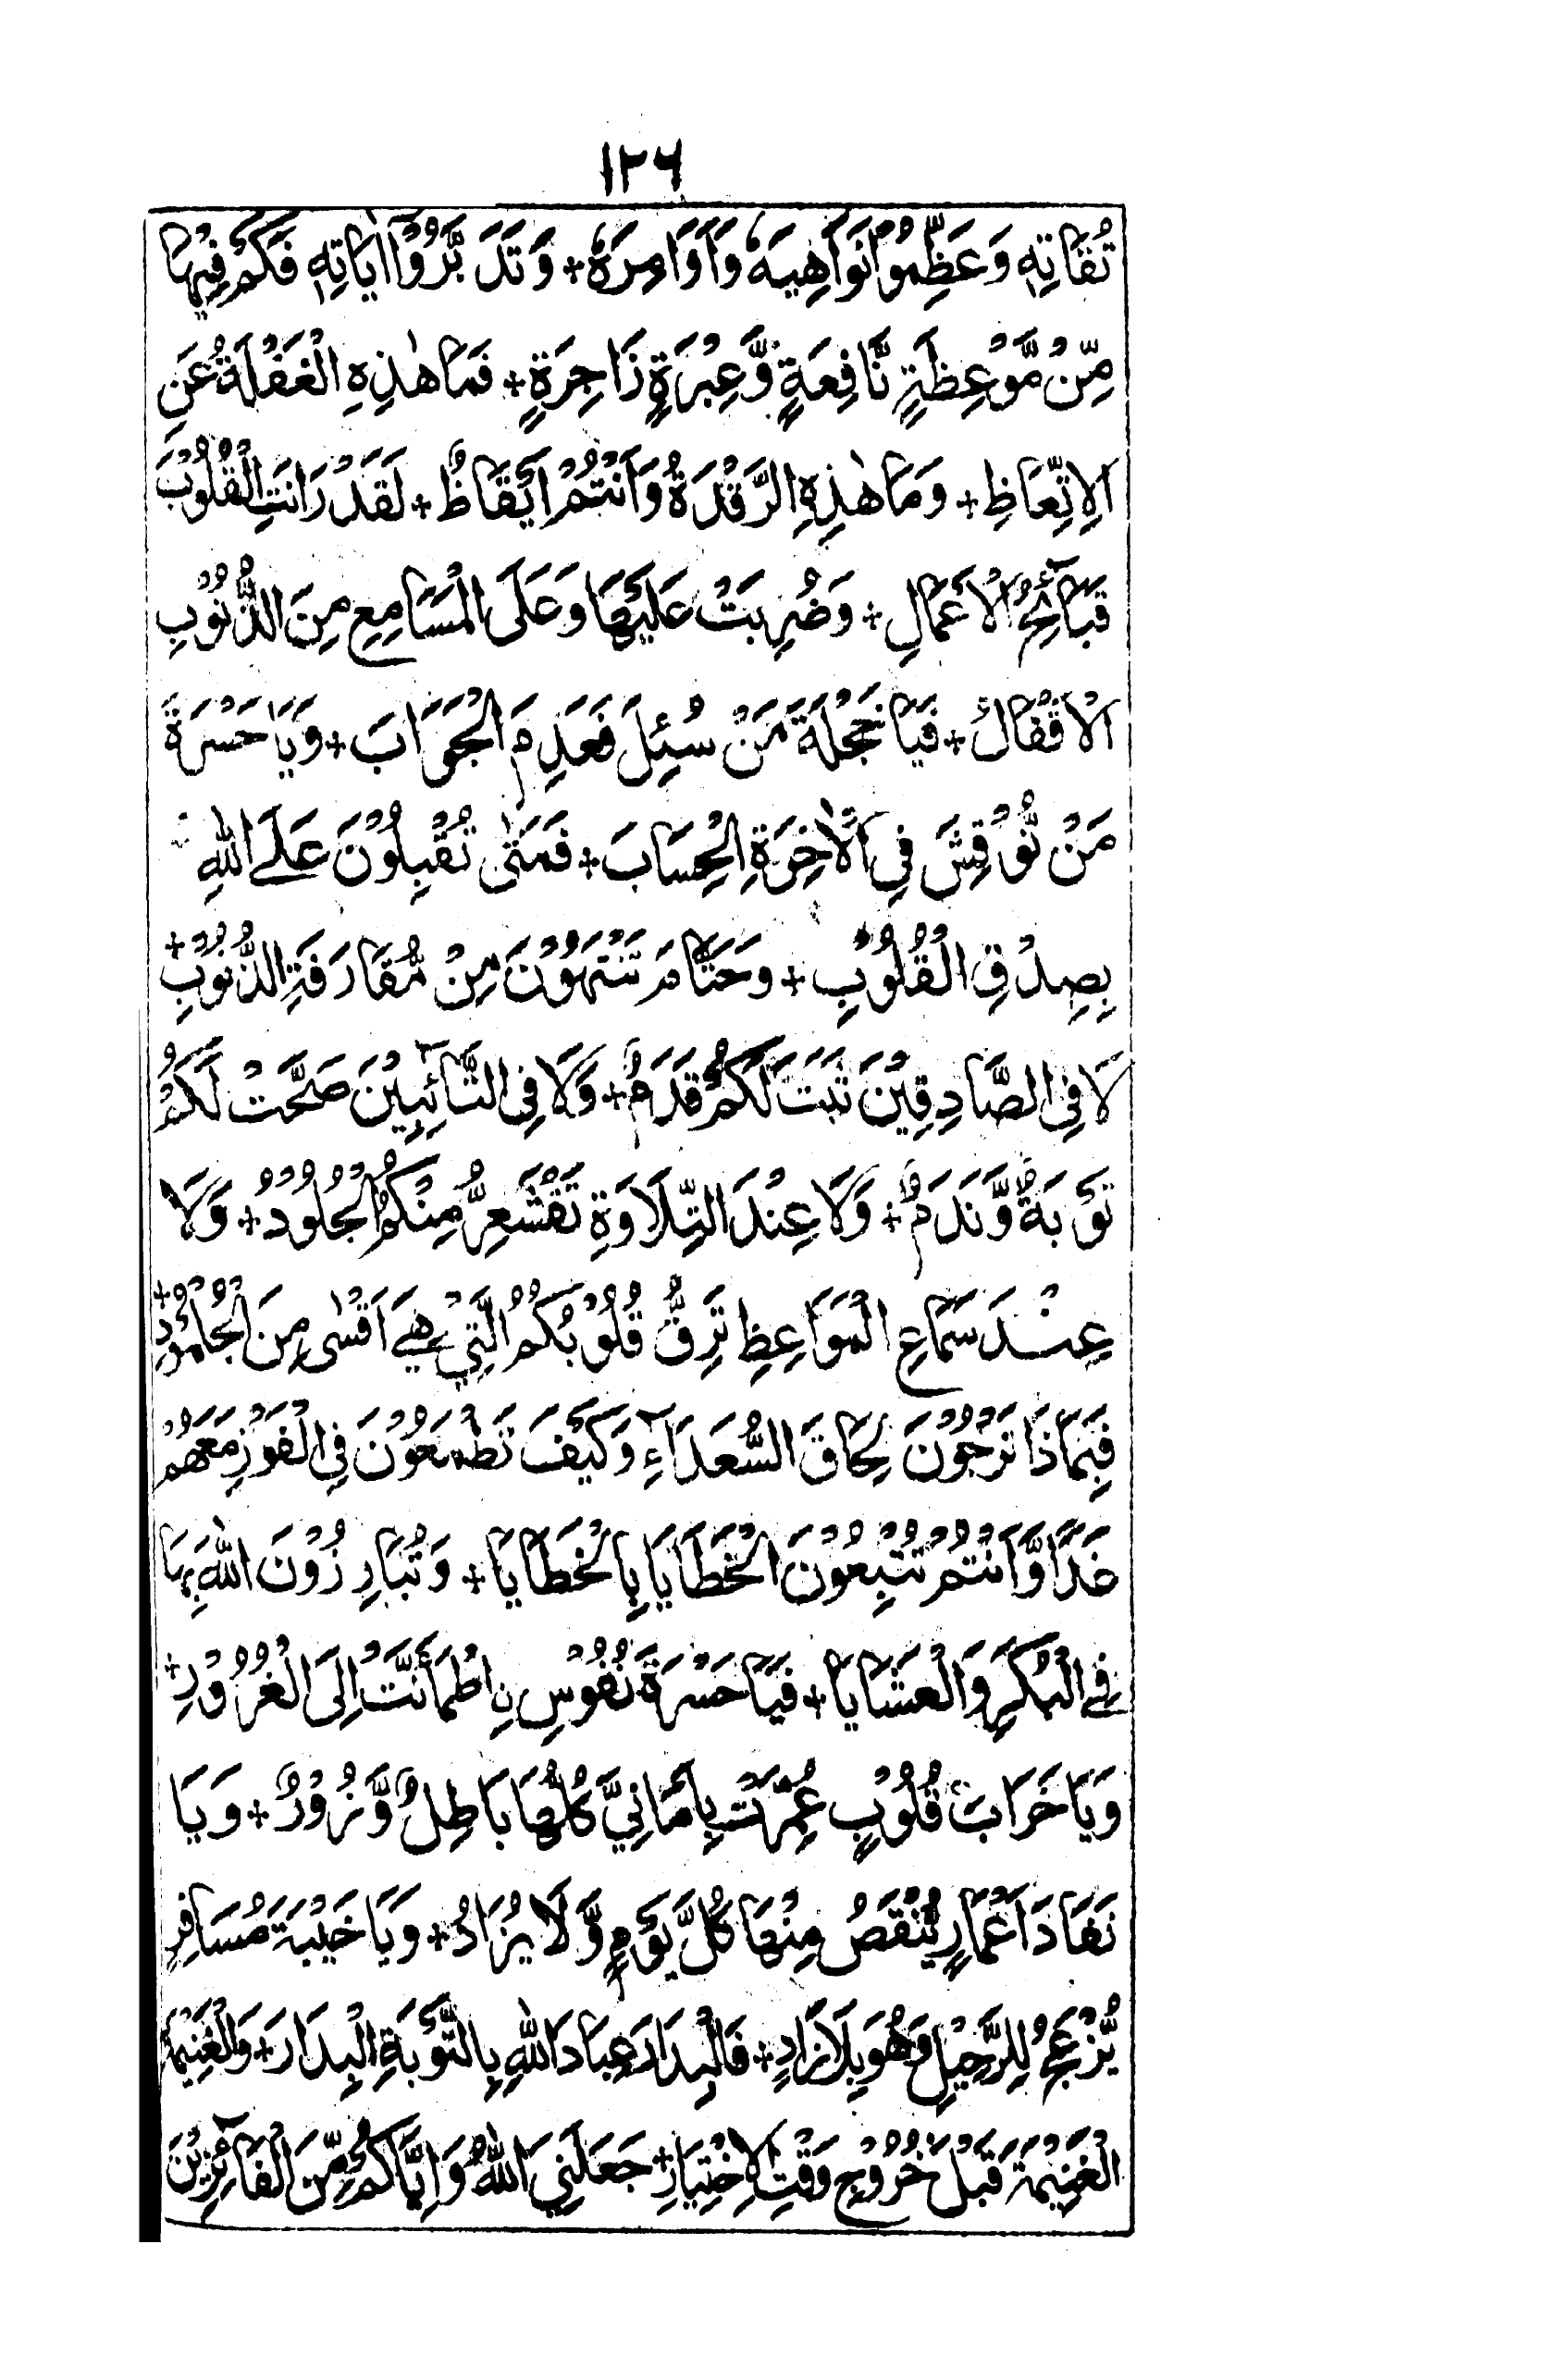 ١٢٦
تُقَاتِهٖ وَعَظِّمُوْا نَوَاهِيَهٗ وَاَوَامِرَهٗ + وَتَدَبَّرُوْا اٰيَاتِهٖ فَكَمْ فِيْهَا
مِّنْ مَّوْعِظَةٍ نَّافِعَةٍ وَّعِبْرَةٍ زَاجِرَةٍ + فَمَا هٰذِهِ الْغَفْلَةُ عَنِ
الِاتِّعَاظِ + وَمَا هٰذِهِ الرَّقْدَةُ وَاَنْتُمْ اَيْقَاظٌ + لَقَدْ رَانَتِ الْقُلُوْبَ
قَبَآئِحُ الْاَعْمَالِ + وَضُرِبَتْ عَلَيْهَا وَعَلَى الْمَسَامِعِ مِنَ الذُّنُوْبِ
الْاَقْفَالُ + فَيَا خَجْلَةَ مَنْ سُئِلَ فَعَدِمَ الْجَوَابَ + وَيَا حَسْرَةَ
مَنْ نُّوْقِشَ فِي الْاٰخِرَةِ الْحِسَابَ + فَمَتٰى تُقْبِلُوْنَ عَلَى اللهِ
بِصِدْقِ الْقُلُوْبِ + وَحَتَّامَ تَنْتَهُوْنَ مِنْ مُّقَارَفَةِ الذُّنُوْبِ +
لَا فِي الصَّادِقِيْنَ ثَبَتَ لَكُمْ قَدَمٌ + وَلَا فِي التَّآئِبِيْنَ صَحَّتْ لَكُمْ
تَوْبَةٌ وَّنَدَمٌ + وَلَا عِنْدَ التِّلَاوَةِ تَقْشَعِرُّ مِنْكُمُ الْجُلُوْدُ + وَلَا
عِنْدَ سَمَاعِ الْمَوَاعِظِ تَرِقُّ قُلُوْبُكُمُ الَّتِيْ هِيَ اَقْسٰى مِنَ الْجُلْمُوْدِ +
فَبِمَاذَا تَرْجُوْنَ لِحَاقَ السُّعَدَآءِ وَكَيْفَ تَطْمَعُوْنَ فِي الْفَوْزِ مَعَهُمْ
غَدًا وَّاَنْتُمْ تُتْبِعُوْنَ الْخَطَايَا بِالْخَطَايَا + وَتُبَارِزُوْنَ اللهَ بِهَا
فِي الْبُكَرِ وَالْعَشَايَا + فَيَا حَسْرَةَ نُفُوْسٍ نِ اطْمَأَنَّتْ اِلَى الْغُرُوْرِ +
وَيَا خَرَابَ قُلُوْبٍ عُمِّرَتْ بِاَمَانِيَّ كُلُّهَا بَاطِلٌ وَّزُوْرٌ + وَيَا
نَفَادَ اَعْمَارٍ يُّنْقَصُ مِنْهَا كُلَّ يَوْمٍ وَّلَا يُزَادُ + وَيَا خَيْبَةَ مُسَافِرٍ
يُّزْعَجُ لِلرَّحِيْلِ وَهُوَ بِلَا زَادٍ + فَالْبِدَارَ عِبَادَ اللهِ بِالتَّوْبَةِ الْبِدَارَ + وَالْغَنِيْمَةَ
الْغَنِيْمَةَ قَبْلَ خُرُوْجِ وَقْتِ الْاِخْتِيَارِ + جَعَلَنِيَ اللهُ وَاِيَّاكُمْ مِّنَ الْفَآئِزِيْنَ